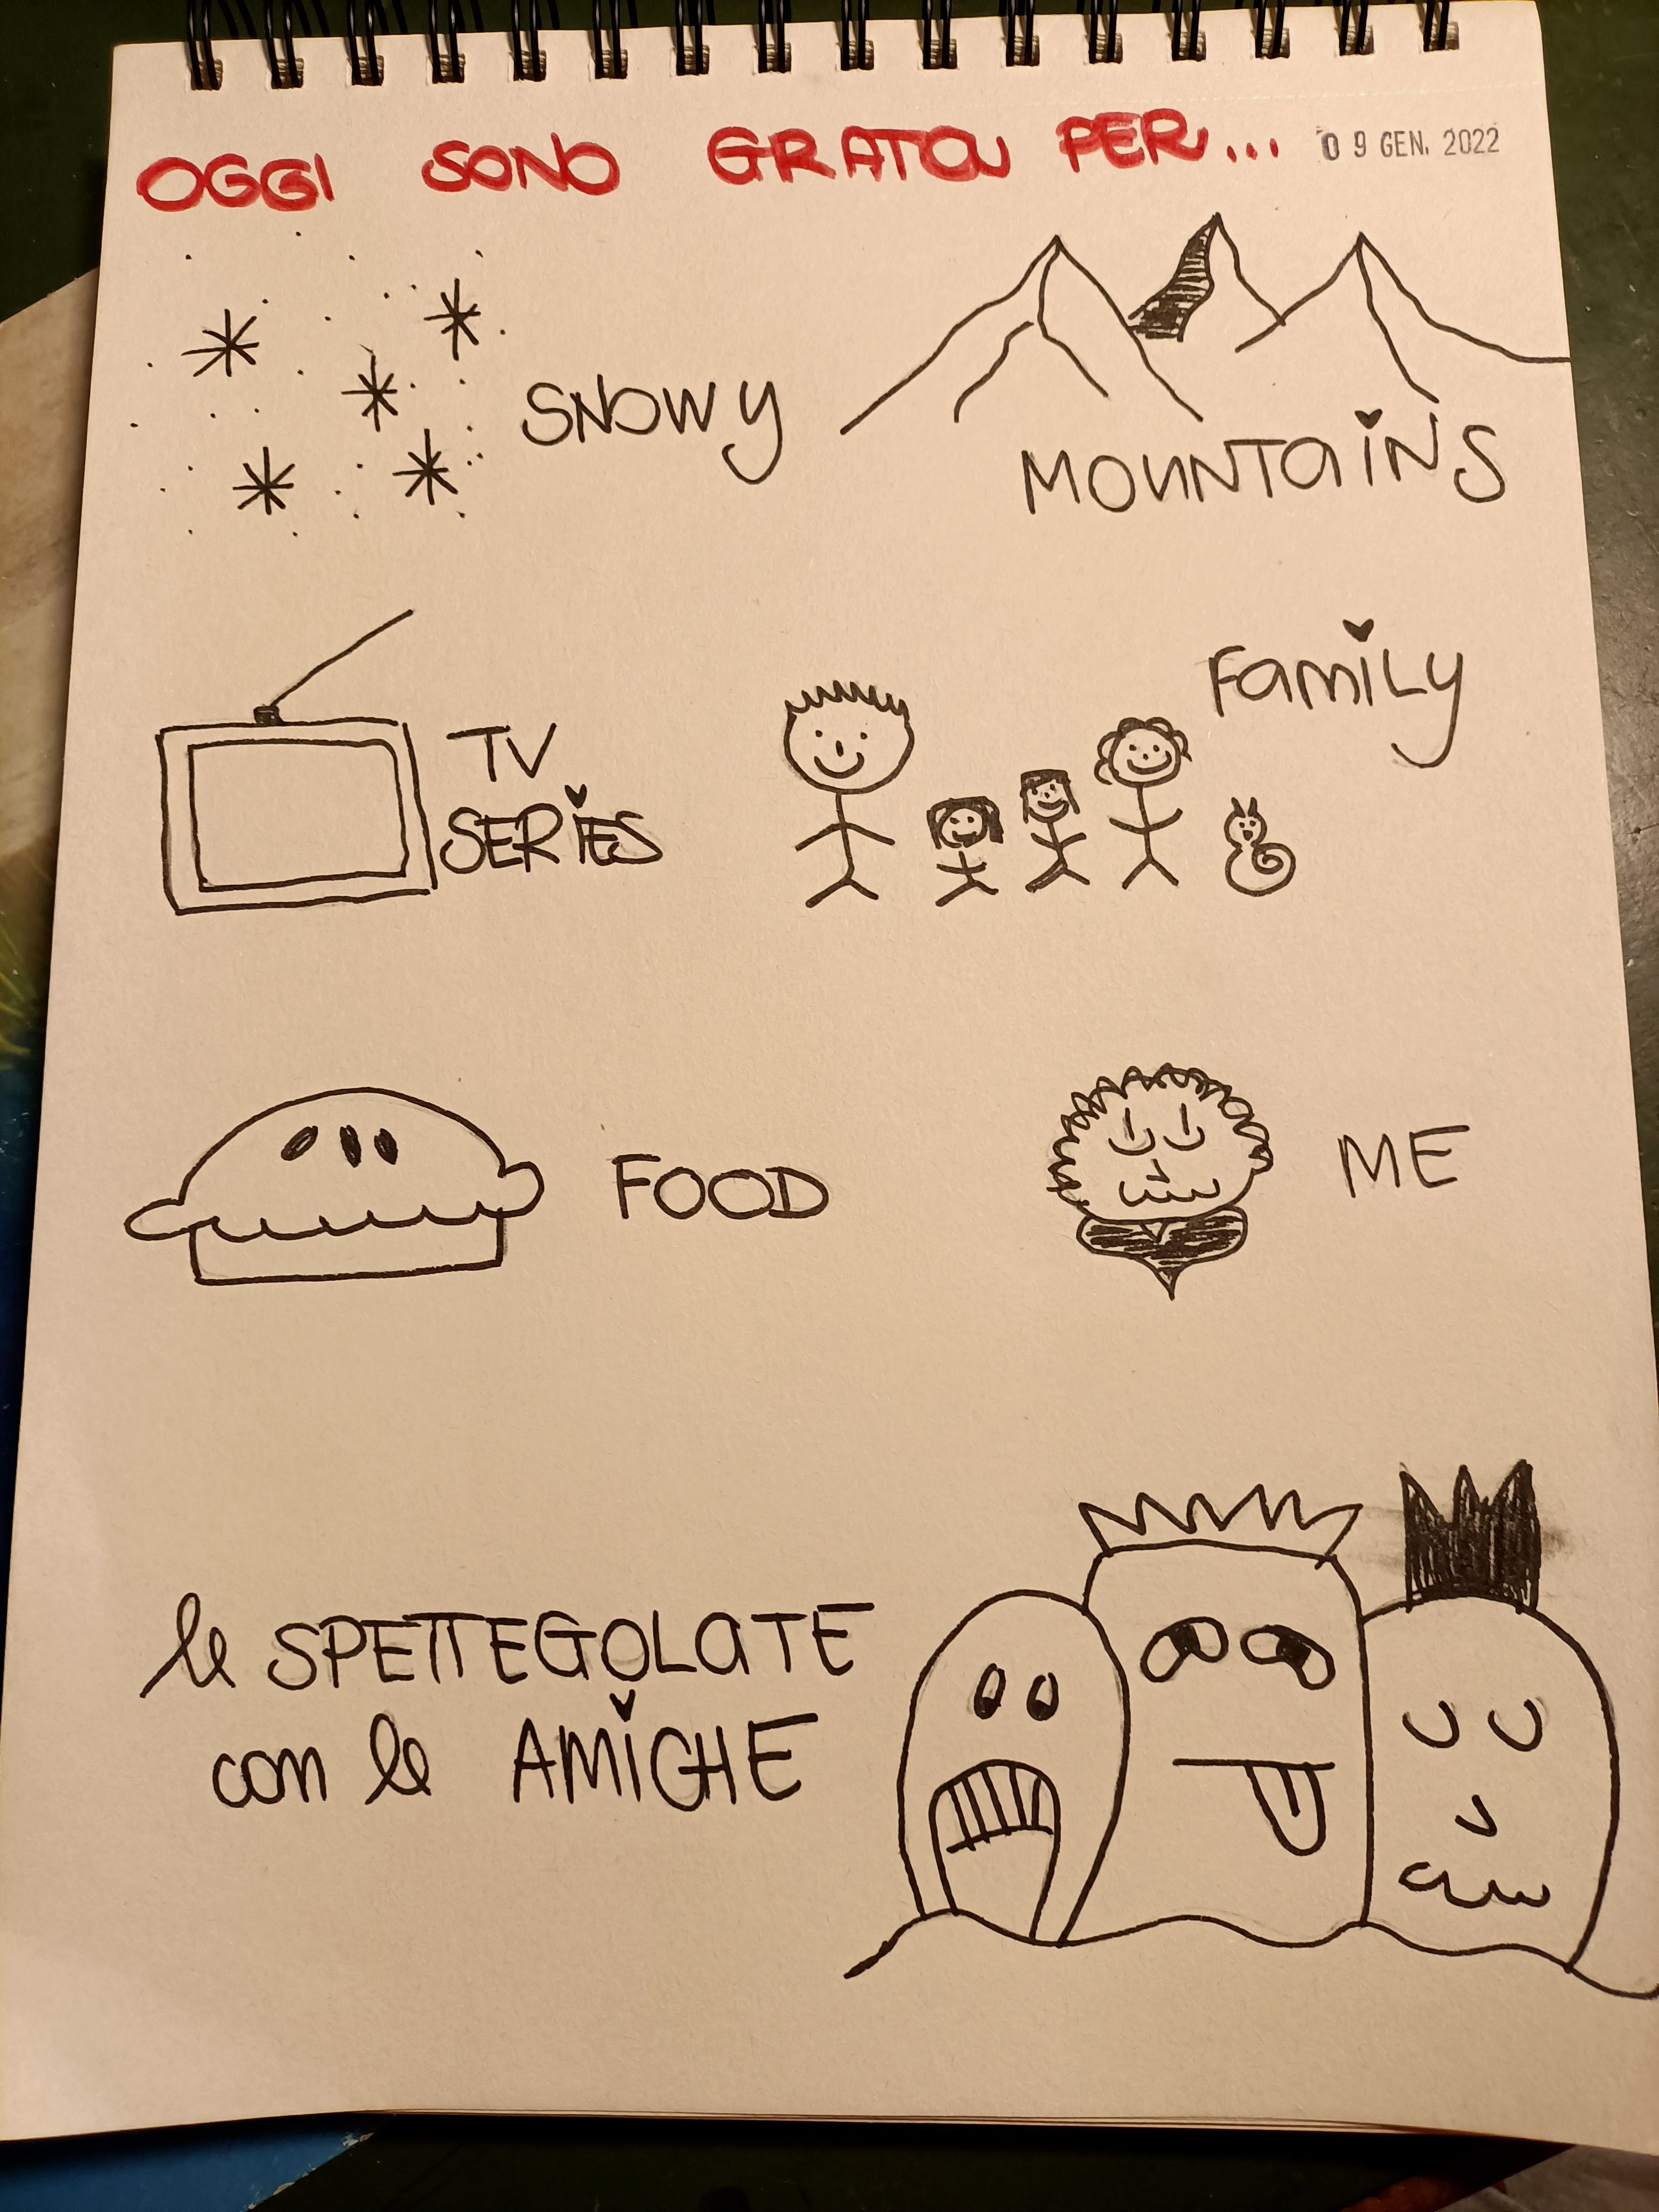 OGGI SONO GRATO PER...
09 GEN. 2022
SNOWY
MOUNTAINS
FAMILY
TV
SERIES
FOOD
ME
le SPETTEGOLATE
con le AMIGHE